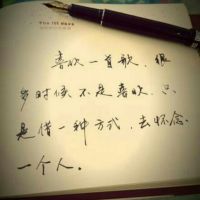 喜欢一首歌，很
多时候不是喜欢，只
是借一种方式，去怀念
一个人。